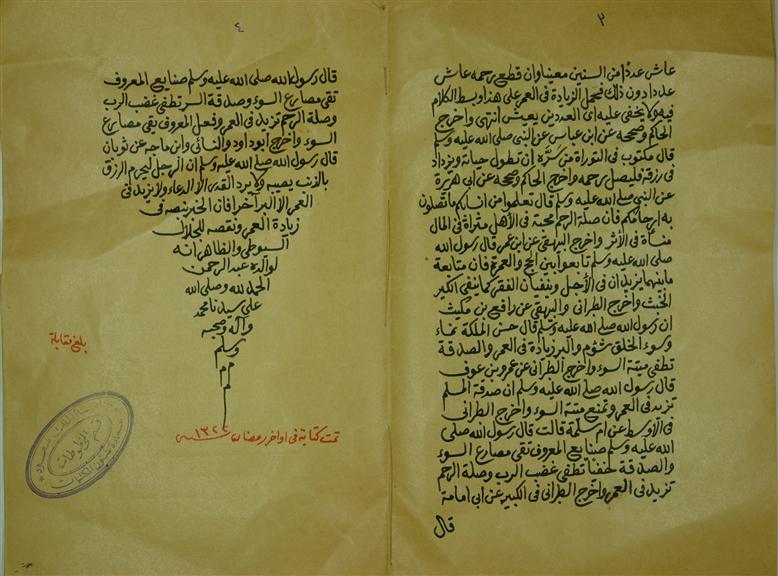 ٣
عاش عددا من السنين معينا وان قطع رحمه عاش
عددا دون ذلك فحمل الزيادة في العمر على هذا وبسط الكلام
فيه ولا يخفى عليه اى العددين يعيش انتهى واخرج
الحاكم وصححه عن ابن عباس عن النبي صلى الله عليه وسلم
قال مكتوب في التوراة من سره ان تطول حياته ويزداد
في رزقه فليصل رحمه واخرج الحاكم وصححه عن ابي هريرة
عن النبي صلى الله عليه وسلم قال تعلموا من انسابكم ما تصلون
به ارحامكم فان صلة الرحم محبة في الأهل مثراة في المال
منسأة في الأثر واخرج البيهقي عن ابن عمر قال رسول الله
صلى الله عليه وسلم تابعوا بين الحج والعمرة فان متابعة
ما بينهما يزيدان في الأجل وينفيان الفقر كما ينفي الكير
الخبث واخرج الطبراني والبيهقي عن رافع بن مكيث
ان رسول الله صلى الله عليه وسلم قال حسن الملكة نماء
وسوء الخلق شؤم والبر زيادة في العمر والصدقة
تطفي ميتة السوء واخرج الطبراني عن عمرو بن عوف
قال رسول الله صلى الله عليه وسلم ان صدقة المسلم
تزيد في العمر وتمنع ميتة السوء واخرج الطبراني
في الأوسط عن ام سلمة قالت قال رسول الله صلى
الله عليه وسلم صنايع المعروف تقى مصارع السوء
والصدقة خفيا تطفي غضب الرب وصلة الرحم
تزيد في العمر واخرج الطبراني في الكبير عن ابي امامة
قال
٤
قال رسول الله صلى الله عليه وسلم صنايع المعروف
تقى مصارع السوء وصدقة السر تطفى غضب الرب
وصلة الرحم تزيد في العمر وفعل المعروف يقى مصارع
السوء واخرج ابو داود والنسائي وابن ماجه عن ثوبان
قال رسول الله صلى الله عليه وسلم ان الرجل ليحرم الرزق
بالذنب يصيبه ولا يرد القدر الا الدعاء ولا يزيد في
العمر الا البر آخر فان الخبر بنصه في
زيادة العمر ونقصه للجلال
السيوطي والظاهر انه
لوالده عبد الرحمن
الحمد لله وصلى الله
على سيدنا محمد
وآله وصحبه
وسلم
م م
م
تمت كتابة في اواخر رمضان سنة ١٣٢٤
بلغ مقابلة